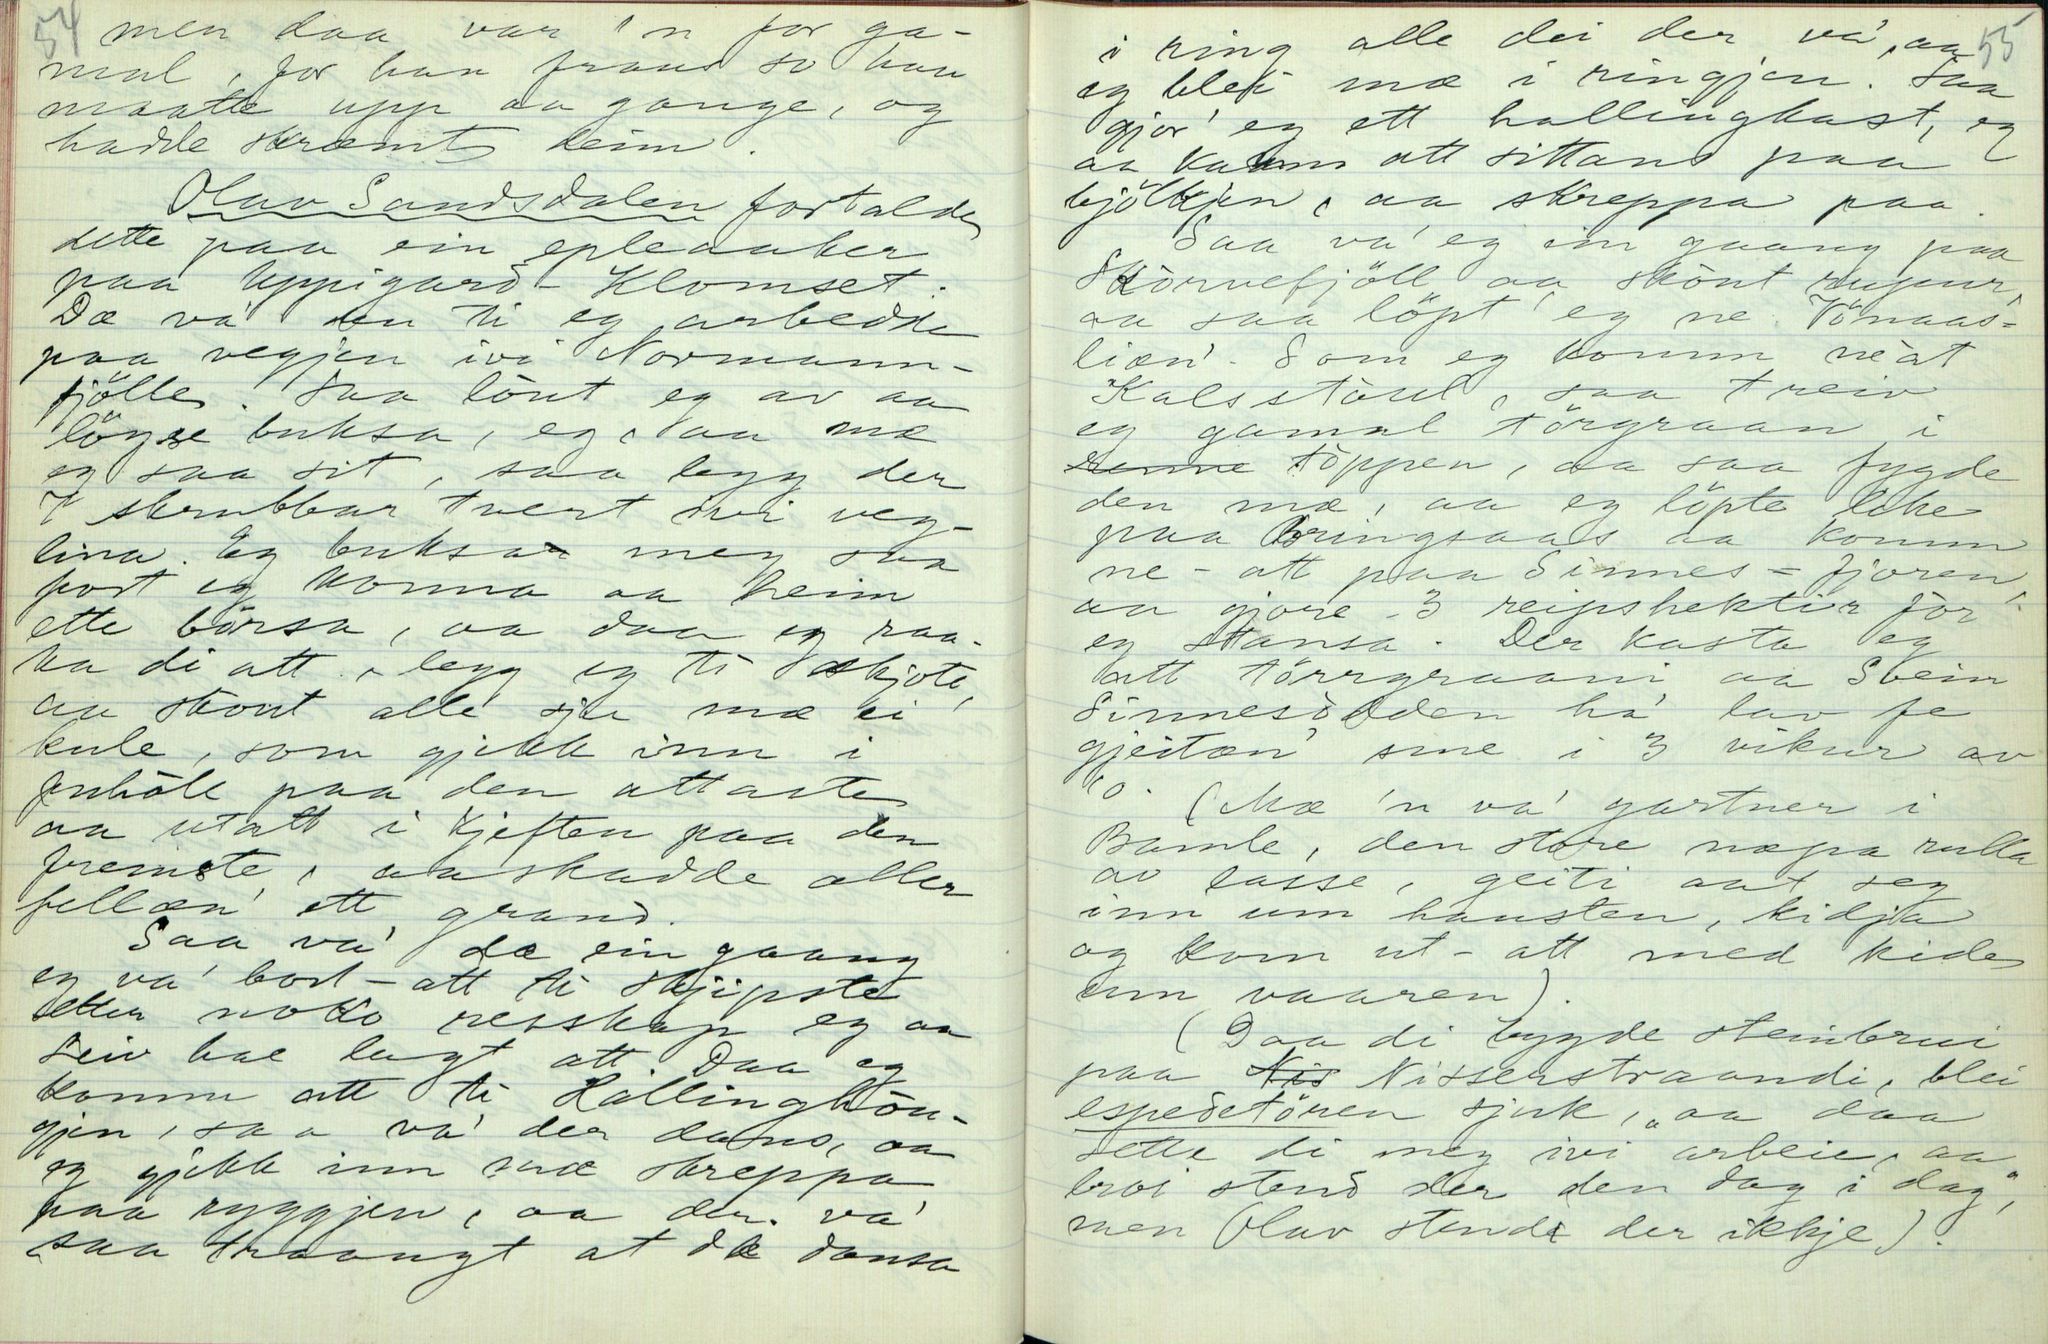 54
men daa var 'n for ga-
mal, for han fraus so han
maatte upp aa gange, og
hadde skræmt deim.
Olav Sandsdalen fortalde
dette paa ein epleaaker
paa Uppigard-Klomset.
Dæ va' en ti eg arbedde
paa vegjen ivi Normann-
fjölle. Saa lönt eg av aa
löyse buksa, eg, aa mæ
eg saa sit, saa legg der
7 skrubbar tvert ivi veg-
lina. Eg buksar meg saa
fort eg konna aa heim
ette börsa, aa daa eg raa-
ka di att, legg eg ti skjote,
aa skout alle sju mæ ei
kule, som gjekk inn i
fuhöle paa den attaste
aa utatt i kjeften paa den
fremste, aa skadde aller
fellæn' ett grand.
Saa va' dæ ein gaang
eg va' bort-att ti Skjipste
etter noko resskap eg aa
Leiv hae lagt att. Daa eg
komm att ti Hallinghöu-
gjen, saa va' der dans, aa
eg gjekk inn mæ skreppa
paa ryggjen, aa der va'
saa traangt at dæ dansa
55
i ring alle dei der va', aa
eg blei mæ i ringjen. Saa
gjor' eg ett hallingkast, eg
aa kamm att sittans paa
bjölkjen, aa skreppa paa.
Saa va' eg ein gaang paa
Skorvefjöll aa skönt rujpur,
aa saa löpt eg ne Vönaas-
liæn'. Som eg komm ne'at
Kalsstöul, saa treiv
eg gamal törgraan i
töppen, aa saa fygde
den mæ, aa eg löpte like
paa Bringsaas aa komm
ne-att paa Sinnes-fjoren,
aa gjore 3 reipshektir för
eg stansa. Der kasta eg
att törrgraani aa Svein
Sinnesödden ha' lav fe
gjeitæn' sine i 3 vikur av
'o. (Mæ 'n va' gartner i
Bamle, den store næpa rulla
av lasse, geiti aat seg
inn um hausten, kidja
og kom ut-att med kide
um vaaren).
(Daa di bygde steinbrui
paa Nis Nisserstraandi, blei
espedetören sjuk, "aa daa
sette di meg ivi arbeie, aa
broi stend der den dag i dag",
men Olav stend der ikkje).